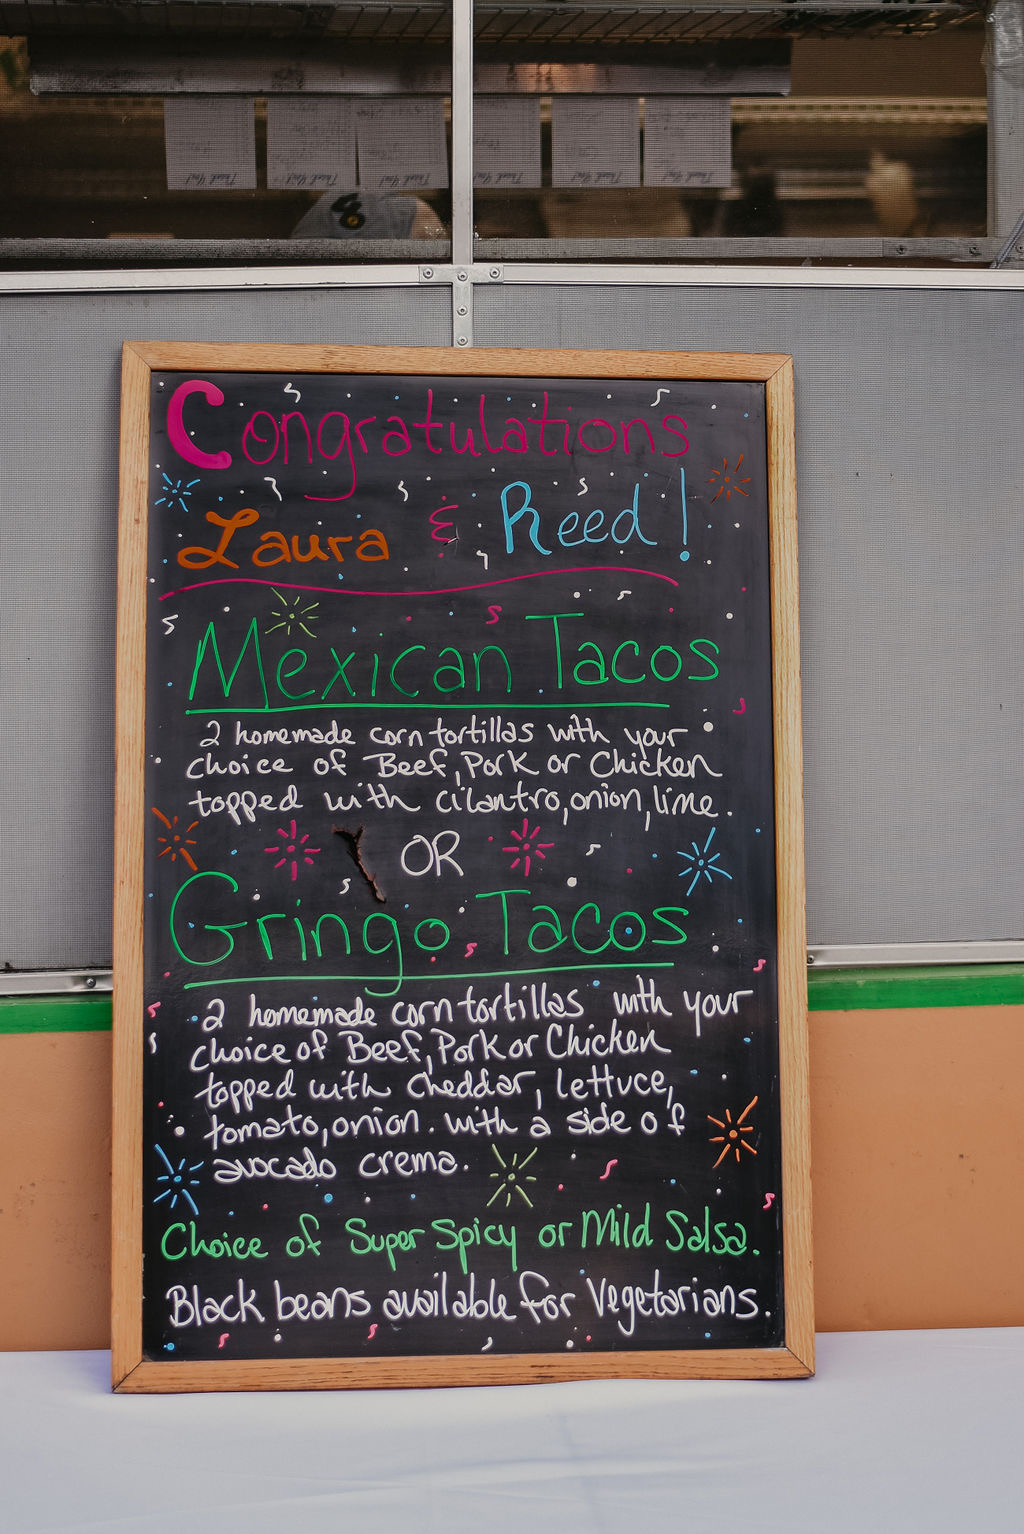 Congratulations
Laura & Reed!
Mexican Tacos
2 homemade corn tortillas with your
choice of Beef, Pork or Chicken
topped with cilantro, onion, lime.
OR
Gringo Tacos
2 homemade corn tortillas with your
choice of Beef, Pork or Chicken
topped with cheddar, lettuce,
tomato, onion. with a side of
avocado crema.
Choice of Super Spicy or Mild Salsa.
Black beans available for Vegetarians.